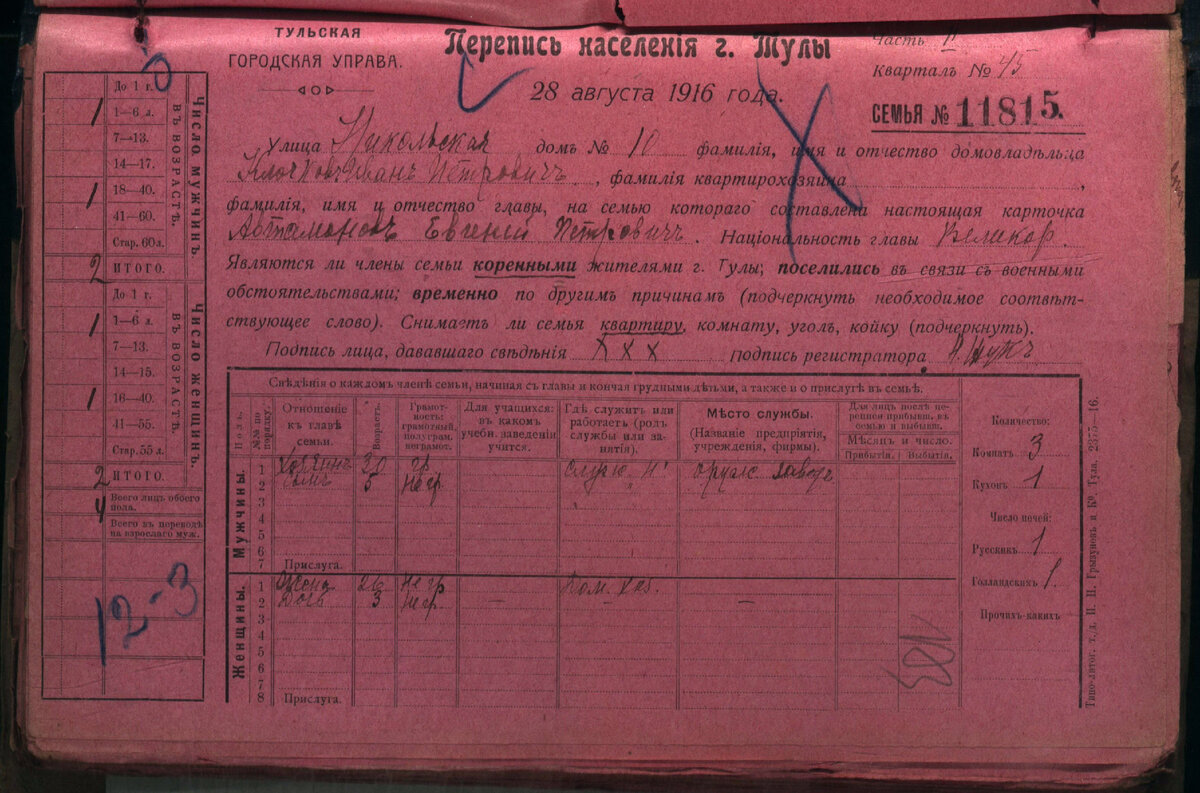 ТУЛЬСКАЯ
ГОРОДСКАЯ УПРАВА.
Перепись населенія г. Тулы
28 августа 1916 года.
Часть II
Кварталъ № 45
СЕМЬЯ № 11815.
Улица Никольская домъ № 10 фамилія, имя и отчество домовладѣльца
Клочковъ Иванъ Петровичъ, фамилія квартирохозяина
фамилія, имя и отчество главы, на семью котораго составлена настоящая карточка
Автамоновъ Евгений Петровичъ. Національность главы Великор.
Являются ли члены семьи коренными жителями г. Тулы; поселились въ связи съ военными
обстоятельствами; временно по другимъ причинамъ (подчеркнуть необходимое соотвѣт-
ствующее слово). Снимаетъ ли семья квартиру, комнату, уголъ, койку (подчеркнуть).
Подпись лица, дававшаго свѣдѣнія Х Х Х Подпись регистратора
Число мужчинъ
ВЪ ВОЗРАСТѢ.
До 1 г.
1—6 л. 1
7—13.
14—17.
18—40. 1
41—60.
Стар. 60 л.
ИТОГО. 2
Число женщинъ.
ВЪ ВОЗРАСТѢ.
До 1 г.
1—6 л. 1
7—13.
14—15.
16—40. 1
41—55.
Стар. 55 л.
ИТОГО. 2
Всего лицъ обоего
пола. 4
Всего въ переводѣ
на взрослаго муж.
12-3
Свѣдѣнія о каждомъ членѣ семьи, начиная съ главы и кончая грудными дѣтьми, а также и о прислугѣ въ семьѣ.
Полъ.
№№ по порядку.
Отношеніе къ главѣ семьи.
Возрастъ.
Грамотность: грамотный, полуграм. неграмот.
Для учащихся: въ какомъ учебн. заведеніи учится.
Гдѣ служитъ или работаетъ (родъ службы или занятія).
Мѣсто службы. (Названіе предпріятія, учрежденія, фирмы).
Для лицъ послѣ переписи прибывш. въ семью и выбывш.
Мѣсяцъ и число.
Прибытія. Выбытія.
Мужчины.
1 Хозяинъ 30 гр
2 Сынъ 5 Негр. оруж заводъ
3
4
5
6
7 Прислуга.
Женщины.
1 Жена 26 Негр
2 Дочь 3 Негр. — — —
3
4
5
6
7
8 Прислуга.
Количество:
Комнатъ 3
Кухонь 1
Число печей:
Русскихъ 1
Голландскихъ 1.
Прочихъ-какихъ
Типо-литог. т. д. П. Н. Грызуновъ и Ко, Тула, 2375—16.